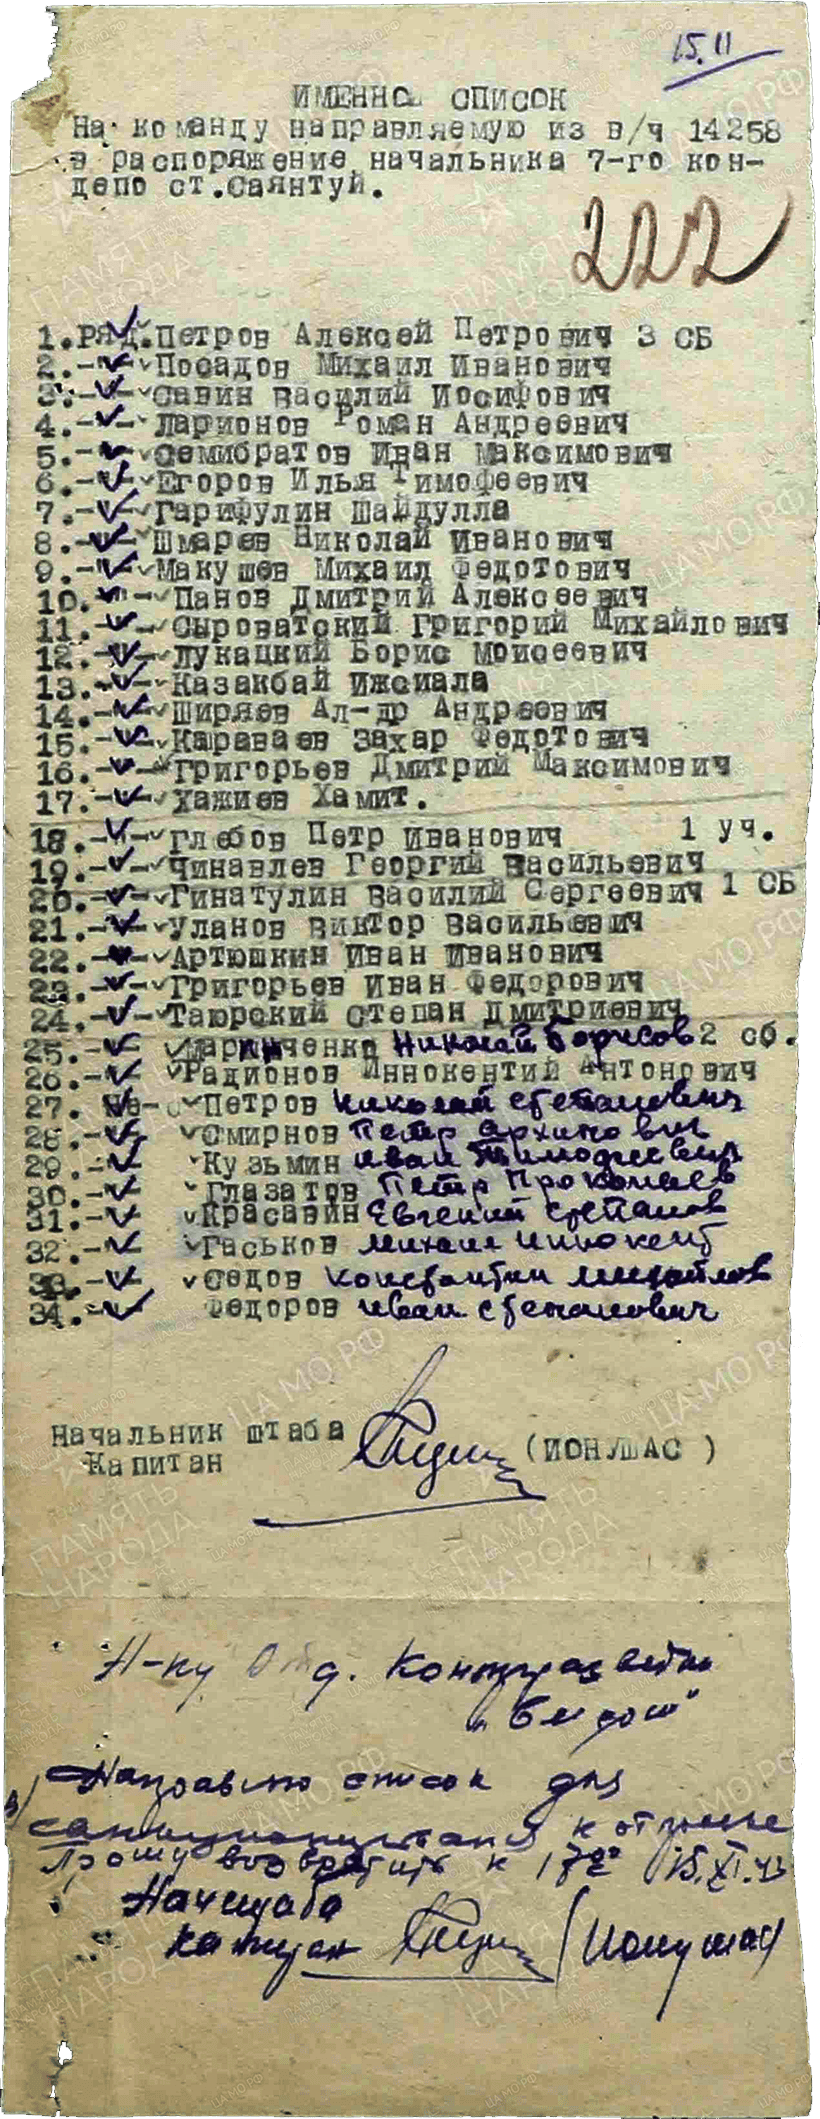 15.11
ИМЕННО СПИСОК
На команду направляемую из в/ч 14258
в распоряжение начальника 7-го кон-
депо ст.Саянтуй.
222
1.Ряд.Петров Алексей Петрович 3 СБ
2.-"-Посадов Михаил Иванович
3.-"-Савин Василий Иосифович
4.-"-Ларионов Роман Андреевич
5.-"-Семибратов Иван Максимович
6.-"-Егоров Илья Тимофеевич
7.-"-Гарифулин Шайдулла
8.-"-Шмарев Николай Иванович
9.-"-Макушев Михаил Федотович
10.-"-Панов Дмитрий Алексеевич
11.-"-Сыроватский Григорий Михайлович
12.-"-Лукацкий Борис Моисеевич
13.-"-Казакбай Ижсиала
14.-"-Ширяев Ал-др Андреевич
15.-"-Караваев Захар Федотович
16.-"-Григорьев Дмитрий Максимович
17.-"-Хажиев Хамит.
18.-"-Глебов Петр Иванович 1 уч.
19.-"-Чинавлев Георгий Васильевич
20.-"-Гинатулин Василий Сергеевич 1 СБ
21.-"-Уланов Виктор Васильевич
22.-"-Артюшкин Иван Иванович
23.-"-Григорьев Иван Федорович
24.-"-Таюрский Степан Дмитриевич
25.-"- Маринченко Николай Борисов 2 сб.
26.-"- Радионов Иннокентий Антонович
27. Петров Николай Степанович
28.-"- Смирнов Петр Архипович
29.-"- Кузьмин Иван Тимофеевич
30.-"- Глазатов Петр Прокопьев
31.-"- Красавин Евгений Степанов
32.-"- Гаськов Михаил Иннокент
33.-"- Седов Константин Михайлов
34.-"- Федоров Иван Степанович
Начальник штаба
Капитан (ИОНУШАС )
Н-ку Отд. Контрразведки
"Смерш"
Направляю список для
санкционирования к отправке
Прошу возвратить к 17 00 15.XI.43
Начштаба
капитан (Ионушас)